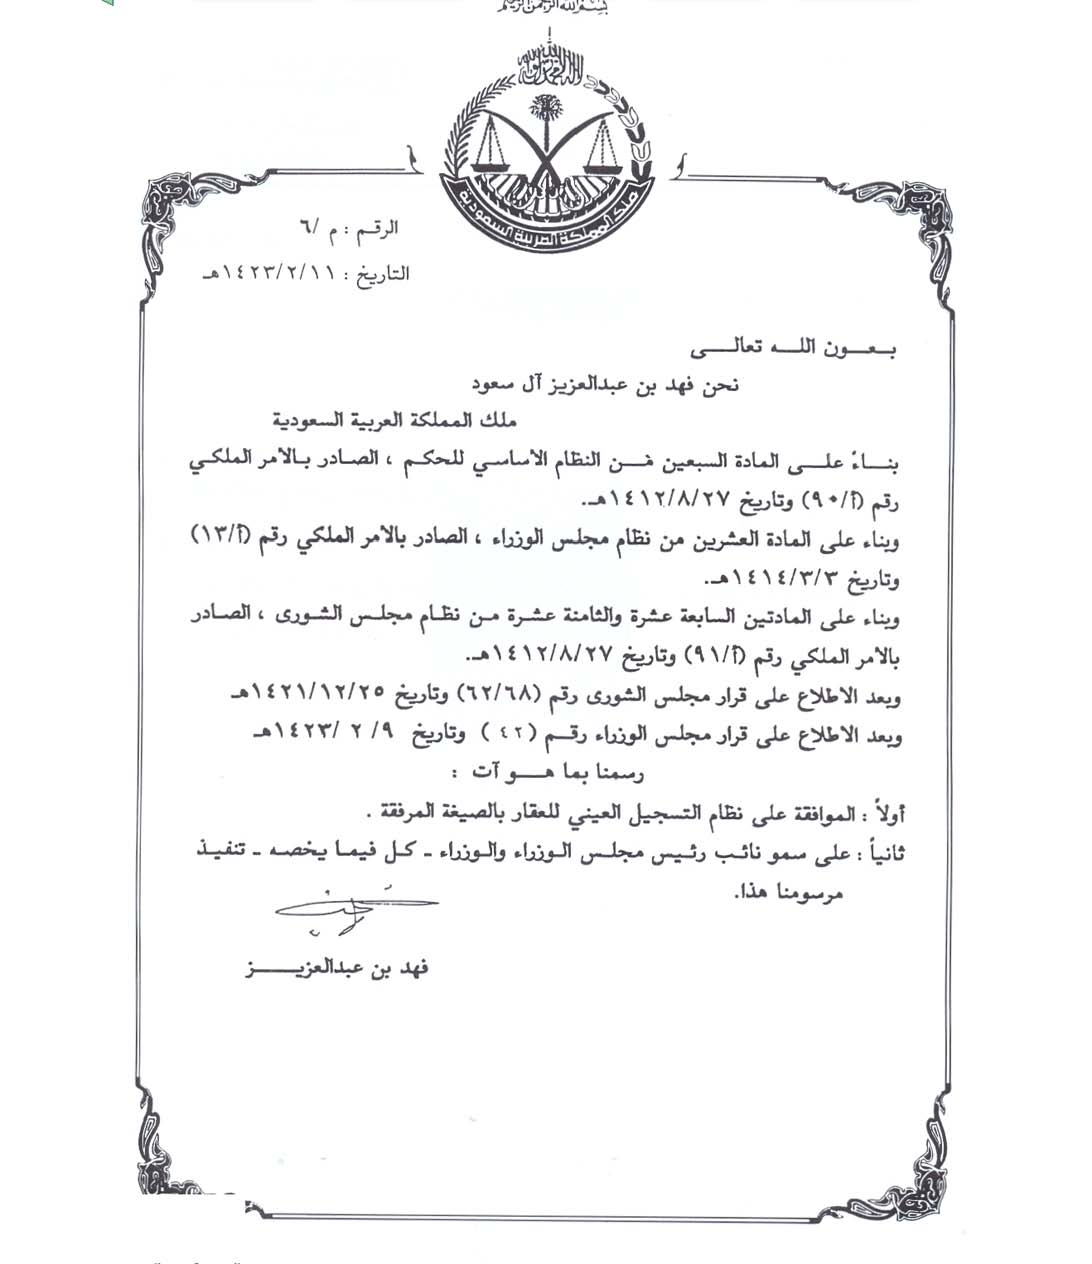 بسم الله الرحمن الرحيم
لا إله إلا الله محمد رسول الله
ملك المملكة العربية السعودية
الرقم : م /٦
التاريخ : ١٤٢٣/٢/١١هـ
بـعـــون اللـــه تعالـــى
نحن فهد بن عبدالعزيز آل سعود
ملك المملكة العربية السعودية
بنـــاءً علـــى المادة السبعين مـن النظام الاساسي للحكم ، الصادر بـالامر الملكـي
رقم (أ/٩٠) وتاريخ ١٤١٢/٨/٢٧هـ.
وبناء على المادة العشرين من نظام مجلس الوزراء ، الصادر بالامر الملكي رقم (أ/١٣)
وتاريخ ١٤١٤/٣/٣هـ.
وبناء على المادتين السابعة عشرة والثامنة عشرة مـن نظـام مجلـس الشـورى ، الصـادر
بالامر الملكي رقم (أ/٩١) وتاريخ ١٤١٢/٨/٢٧هـ.
وبعد الاطلاع على قرار مجلس الشورى رقم (٦٢/٦٨) وتاريخ ١٤٢١/١٢/٢٥هـ
وبعد الاطلاع على قرار مجلس الوزراء رقـــم (٤٢ ) وتاريخ ٩/ ٢ /١٤٢٣هـ
رسمنا بما هـــو آت :
أولاً : الموافقة على نظام التسجيل العيني للعقار بالصيغة المرفقة .
ثانياً : على سمو نائـب رئـيس مجلـس الـوزراء والـوزراء ـ كـل فيمـا يخصـه ـ تنفيـذ
مرسومنا هذا.
فهد بن عبدالعزيـــــز